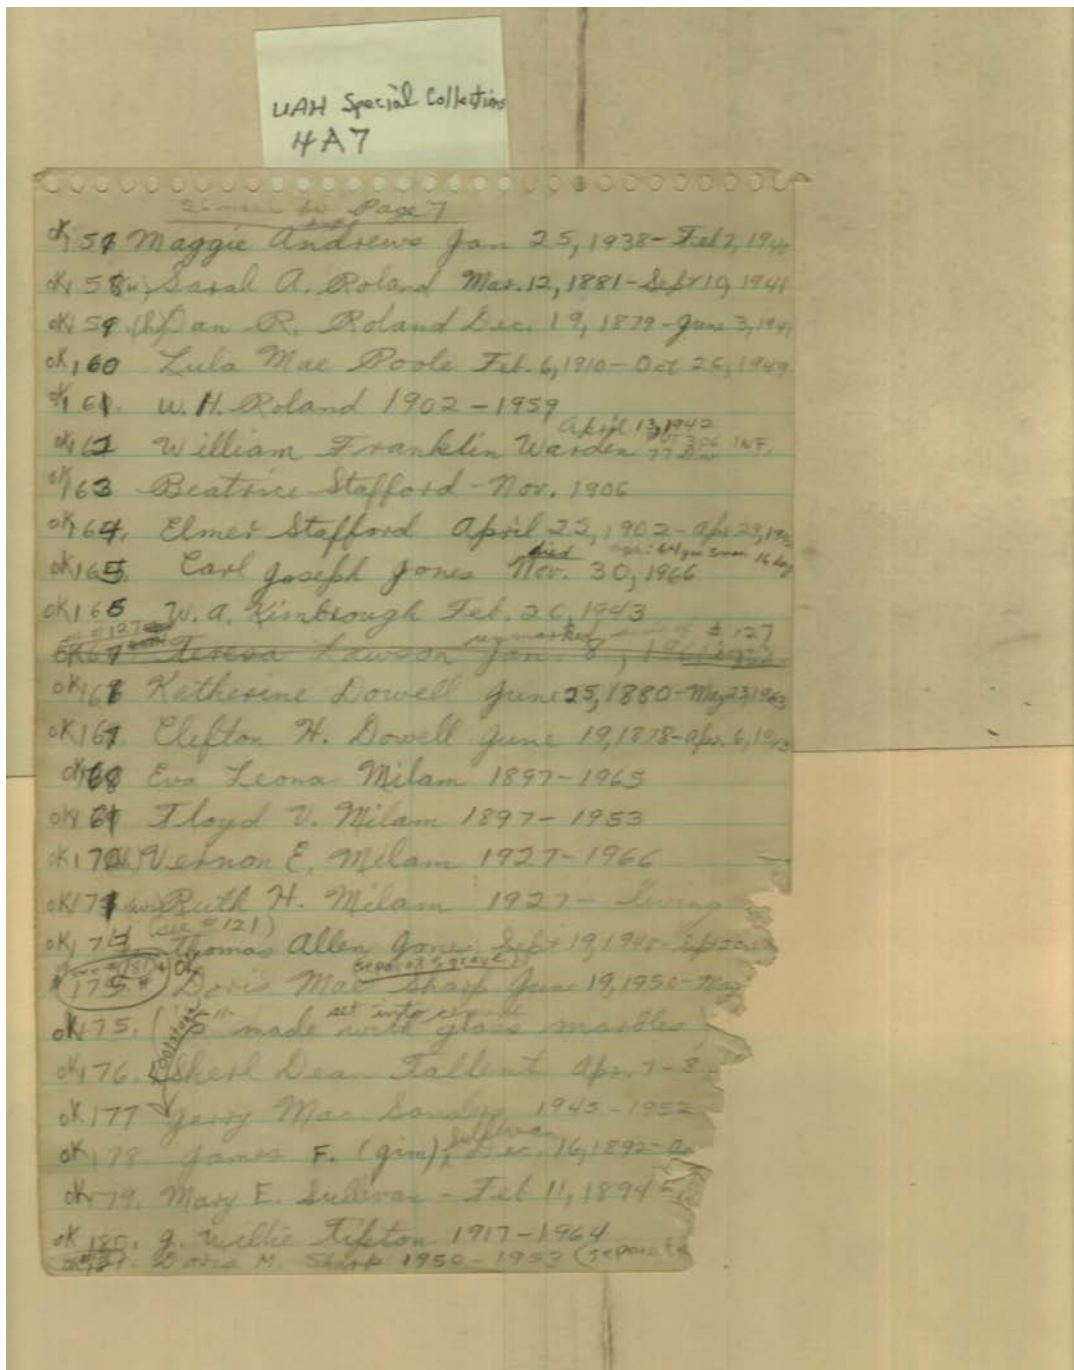 UAH Special Collections
4A7
Page 7
OK 157 Maggie Andrews Jan 25, 1938 - Feb 2, 194
OK 158 (w) Sarah A. Roland Mar. 12, 1881 - Sept 10, 1941
OK 159. (h) Dan R. Roland Dec. 19, 1879 - June 3, 194
OK 160 Lula Mae Poole Feb. 6, 1910 - Oct 26, 1949
OK 161. W. H. Roland 1902 - 1959
April 13, 1942
OK 162 William Franklin Warden 306 INF.
77 Div
OK 163 Beatrice Stafford - Nov. 1906
OK 164. Elmer Stafford April 22, 1902 - Apr. 29, 19
died age: 64 yrs 16 day
OK 165. Carl Joseph Jones Nov. 30, 1966
OK 166 W. A. Kimbrough Feb. 26, 1943
# 127 unmarked # 127
OK 67 Teresa Lawson Jan. 8, 1961
OK 168 Katherine Dowell June 25, 1880 - May 23, 1963
OK 167. Clefton H. Dowell June 19, 1878 - Apr. 6, 19
OK 168 Eva Leona Milam 1897 - 1965
OK 169 Floyd V. Milam 1897 - 1953
OK 170 (h) Vernon E. Milam 1927 - 1966
OK 171 (w) Ruth H. Milam 1927 - living
(see # 121)
OK 174. Thomas Allen Jones Sept 19, 1948 - Sept 20,
(see # 181) OK separate grave
175. Doris Mae Sharp June 19, 1950 - May
set into cement
OK 175. ("S" made with glass marbles)
Footstone
OK 176. Sherl Dean Tallent Apr. 7 - 8
OK 177 Jerry Mac Sandlin 1945 - 1952
Sullivan
OK 178. James F. (Jim) Dec. 16, 1892 - a
OK 179. Mary E. Sullivan - Feb 11, 1894 -
OK 180. J. Willie Tipton 1917 - 1964
OK 181. Doris M. Sharp 1950 - 1953 (separate